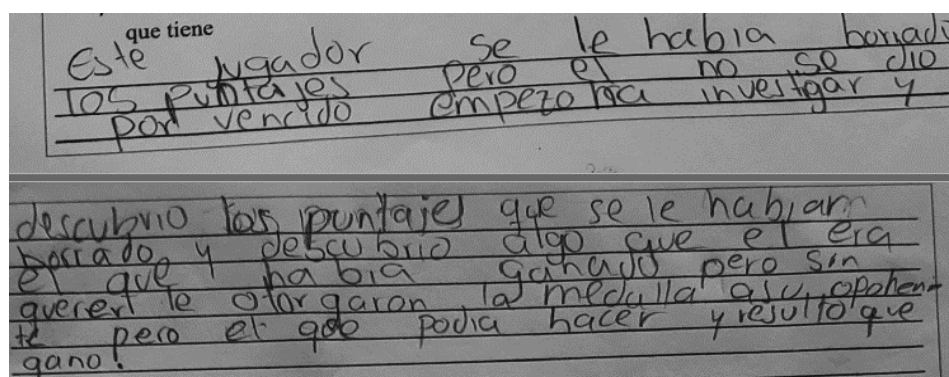 que tiene
Este jugador se le habia borrado
los puntajes pero el no se dio
por vencido empezo ha investigar y
descubrio los puntajes que se le habiam
borrado y descubrio algo que el era
el que habia ganado pero sin
querert le otorgaron la medulla asu oponen-
te pero el qoe podia hacer y resulto que
gano!